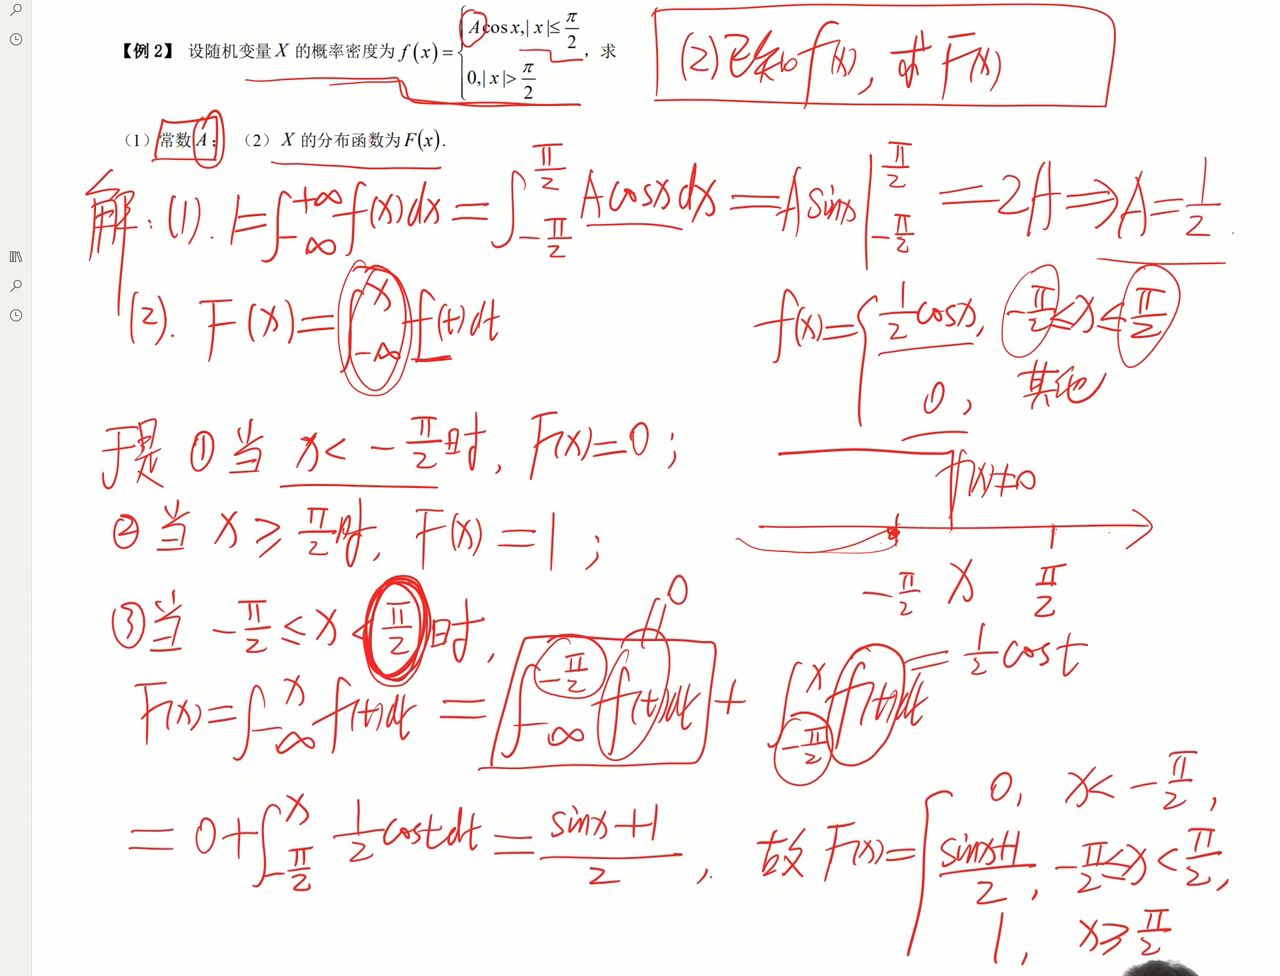 【例2】 设随机变量 X 的概率密度为 f(x)={Acos x,|x|≤π/2 ; 0,|x|>π/2, 求
(2)已知f(x), 求F(x)
(1) 常数 A; (2) X 的分布函数为 F(x).
解:(1). 1=∫_{-∞}^{+∞} f(x)dx = ∫_{-π/2}^{π/2} Acosx dx = A sinx|_{-π/2}^{π/2} = 2A ⇒ A=1/2.
(2). F(x)=∫_{-∞}^{x} f(t)dt
f(x)={1/2 cosx, -π/2≤x≤π/2
0, 其他
于是 ①当 x< -π/2 时, F(x)=0;
f(x)≠0
②当 x≥π/2 时, F(x)=1;
-π/2 x π/2
③当 -π/2≤x<π/2 时,
0
=1/2 cost
F(x)=∫_{-∞}^{x} f(t)dt = ∫_{-∞}^{-π/2} f(t)dt + ∫_{-π/2}^{x} f(t)dt
=0+∫_{-π/2}^{x} 1/2 cost dt = (sinx+1)/2,
故 F(x)={0, x< -π/2,
(sinx+1)/2, -π/2≤x<π/2,
1, x≥π/2